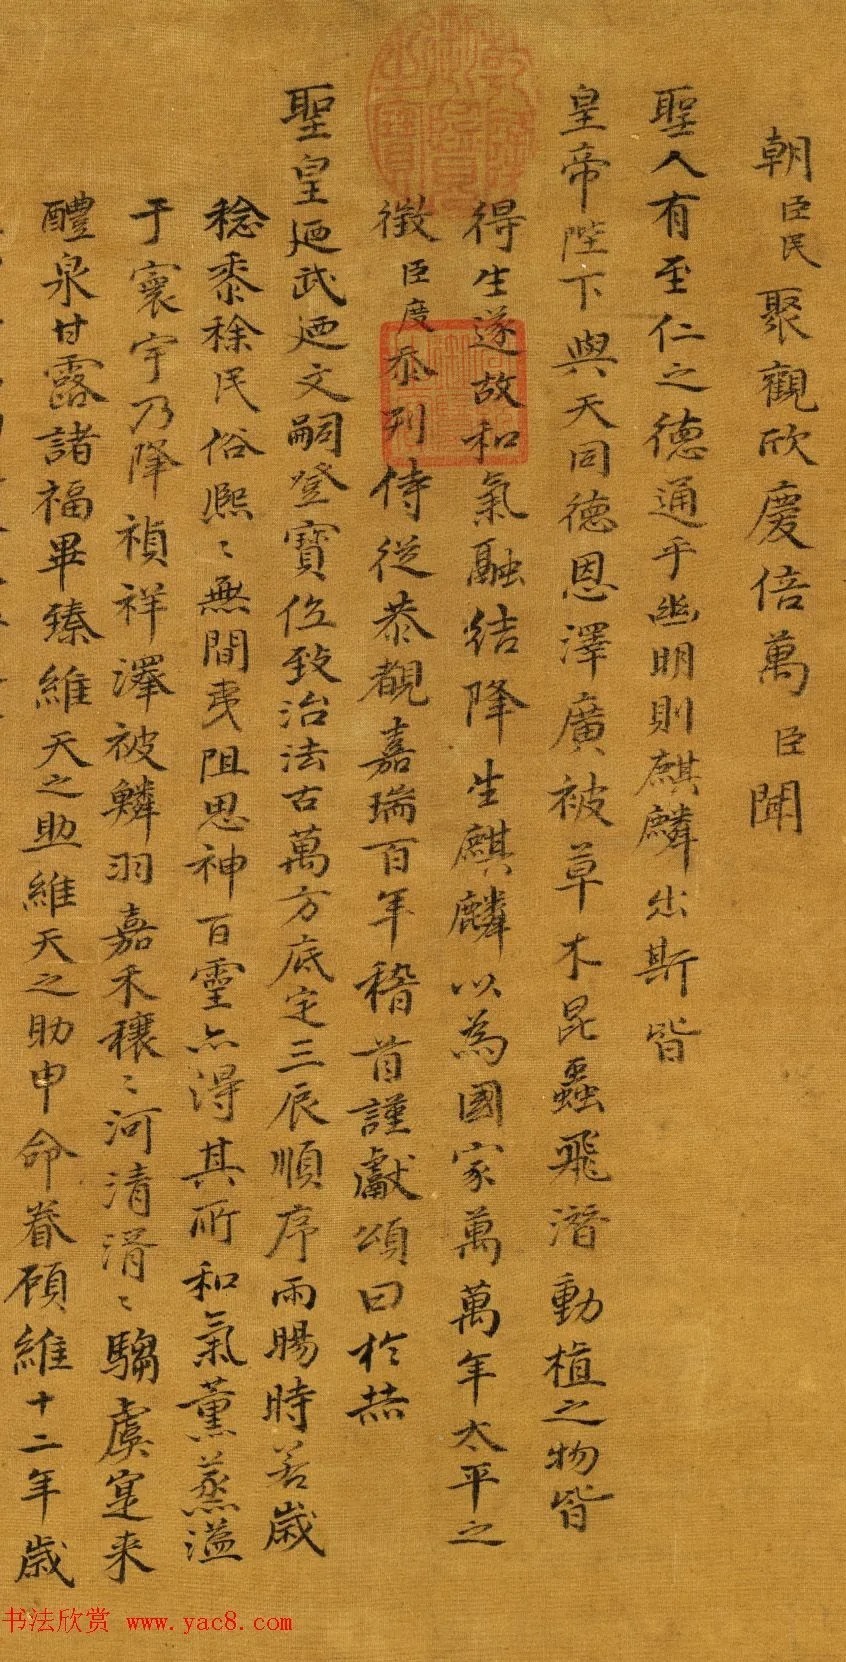 朝臣民聚觀欣慶倍萬臣聞
聖人有至仁之德通乎幽明則麒麟出斯皆
皇帝陛下與天同德恩澤廣被草木昆蟲飛潛動植之物皆
得生遂故和氣融結降生麒麟以為國家萬萬年太平之
徵臣度忝列侍從恭覩嘉瑞百年稽首謹獻頌曰於赫
聖皇廼武廼文嗣登寶位致治法古萬方底定三辰順序雨暘時若歲
稔黍稌民俗熙〻無間夷阻思神百靈亦得其所和氣薰蒸溢
于寰宇乃降禎祥澤被鱗羽嘉禾穰〻河清滑〻騶虞寔来
醴泉甘露諸福畢臻維天之助維天之助申命眷顧維十二年歲
乾隆御覽之寶
书法欣赏 www.yac8.com